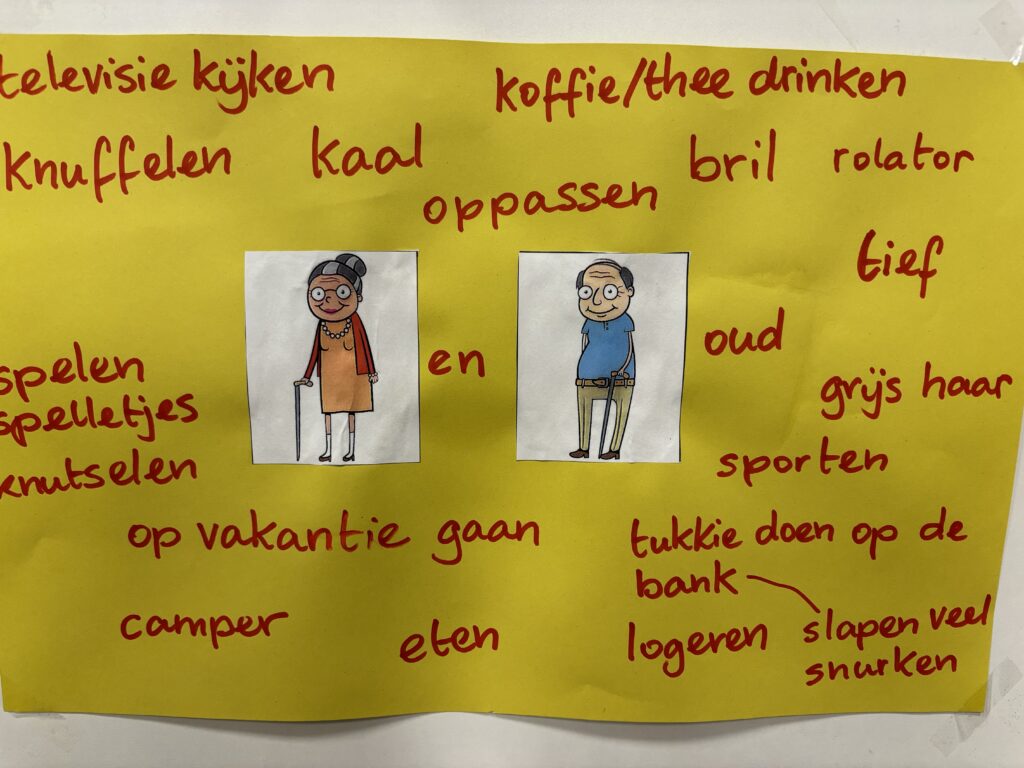 televisie kijken
koffie/thee drinken
knuffelen
kaal
bril
rolator
oppassen
tief
en
oud
spelen
spelletjes
grijs haar
knutselen
sporten
op vakantie gaan
tukkie doen op de
bank
camper
eten
logeren
slapen veel
snurken